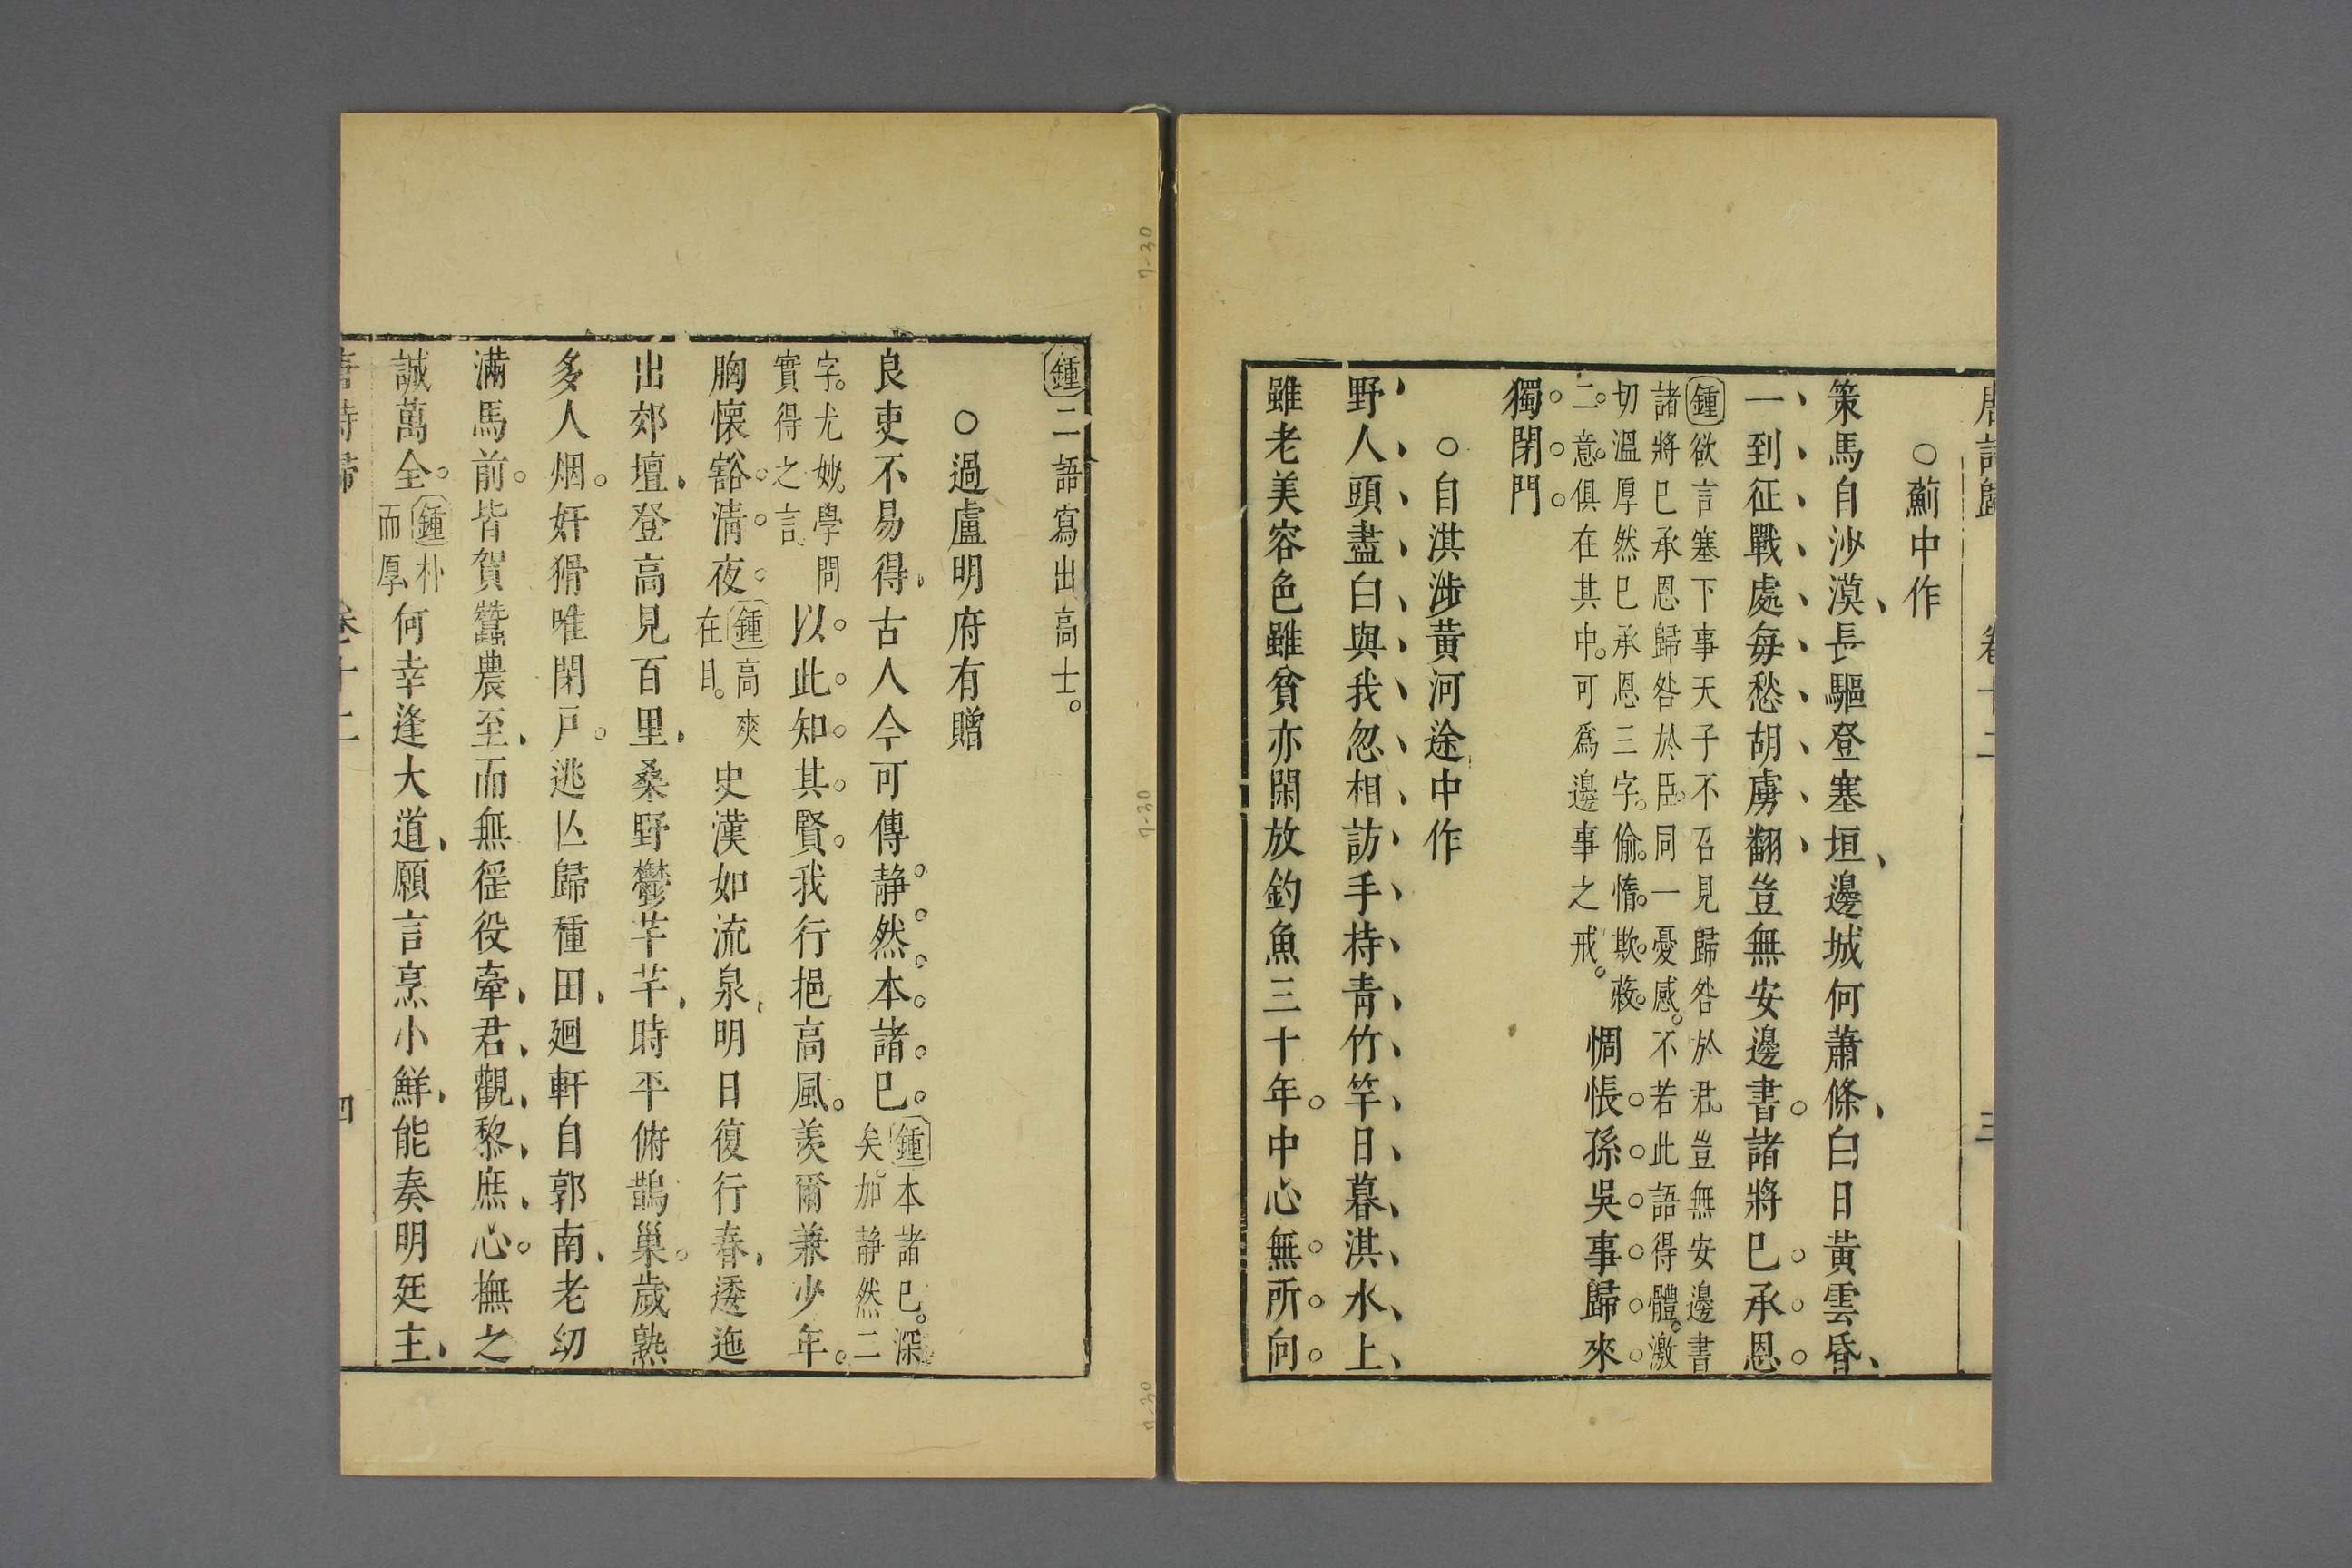 唐詩歸 卷十二 三
○薊中作
策馬自沙漠、長驅登塞垣、邊城何蕭條、白日黃雲昏、
一到征戰處每愁胡虜翻豈無安邊書。諸將已承恩
鍾欲言塞下事天子不召見歸咎於君。豈無安邊書
諸將已承恩歸咎於臣。同一憂感。不若此語得體。激
切溫厚然已承恩三字。偷惰欺蔽
二意俱在其中。可爲邊事之戒。
惆悵孫吳事歸來
獨閉門
○自淇涉黃河途中作
野人頭盡白與我忽相訪手持青竹竿日暮淇水上
雖老美容色雖貧亦閑放釣魚三十年。中心無所向。
鍾二語寫出高士。
○過盧明府有贈
良吏不易得、古人今可傳靜然本諸已。
鍾本諸已。深
矣。加靜然二
字。尤妙。學問
實得之言
以此知其賢。我行挹高風。羨爾兼少年。
胸懷豁淸夜。
鍾高爽
在目。
史漢如流泉、明日復行春、逶迤
出郊壇、登高見百里、桑野鬱芊芊、時平俯鵲巢。歲熟
多人烟。奸猾唯閉戶。逃亾歸種田、廻軒自郭南、老幼
滿馬前。皆賀蠶農至、而無徭役牽、君觀黎庶心。撫之
誠萬全。
鍾朴
而厚
何幸逢大道、願言烹小鮮、能奏明廷主、
唐詩歸 卷十二 四
7-30
7-30
7-30